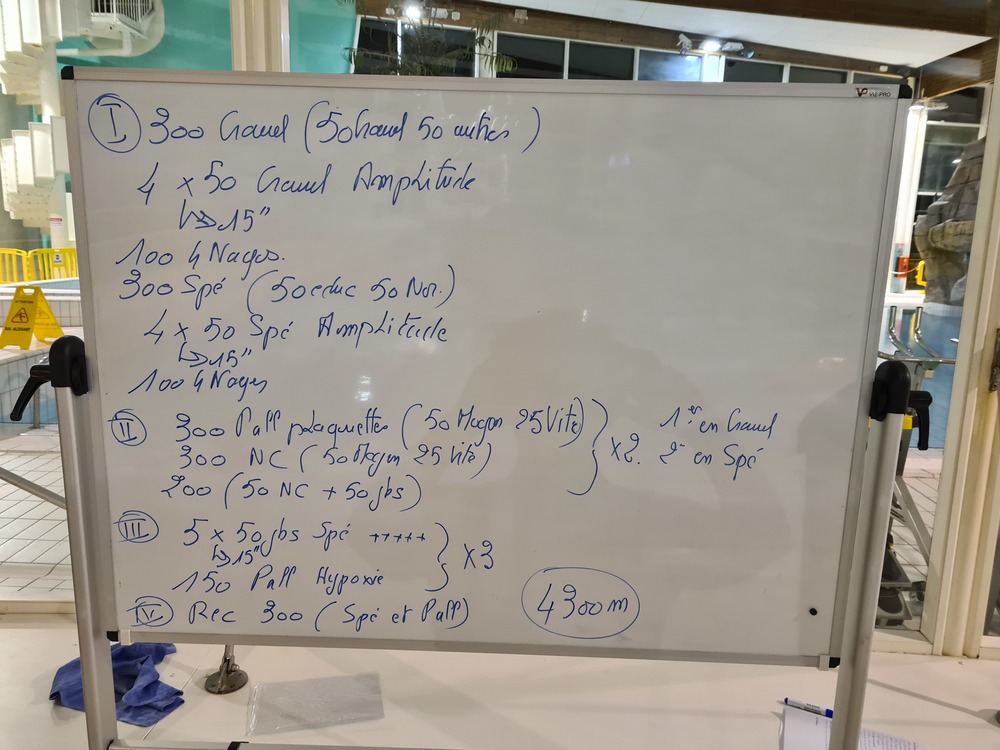 I 300 Crawl (50 Crawl 50 autres)
4 x 50 Crawl Amplitude
↳ 15"
100 4 Nages.
300 Spé (50 educ 50 Nor.)
4 x 50 Spé Amplitude
↳ 15"
100 4 Nages
II 300 Pull plaquettes (50 Moyen 25 Vite) } x2. 1er en Crawl
300 NC (50 Moyen 25 Vite) 2e en Spé
200 (50 NC + 50 jbs)
III 5 x 50 jbs Spé +++++ } x3
↳ 15"
150 Pull Hypoxie
IV Rec 300 (Spé et Pull) 4300m